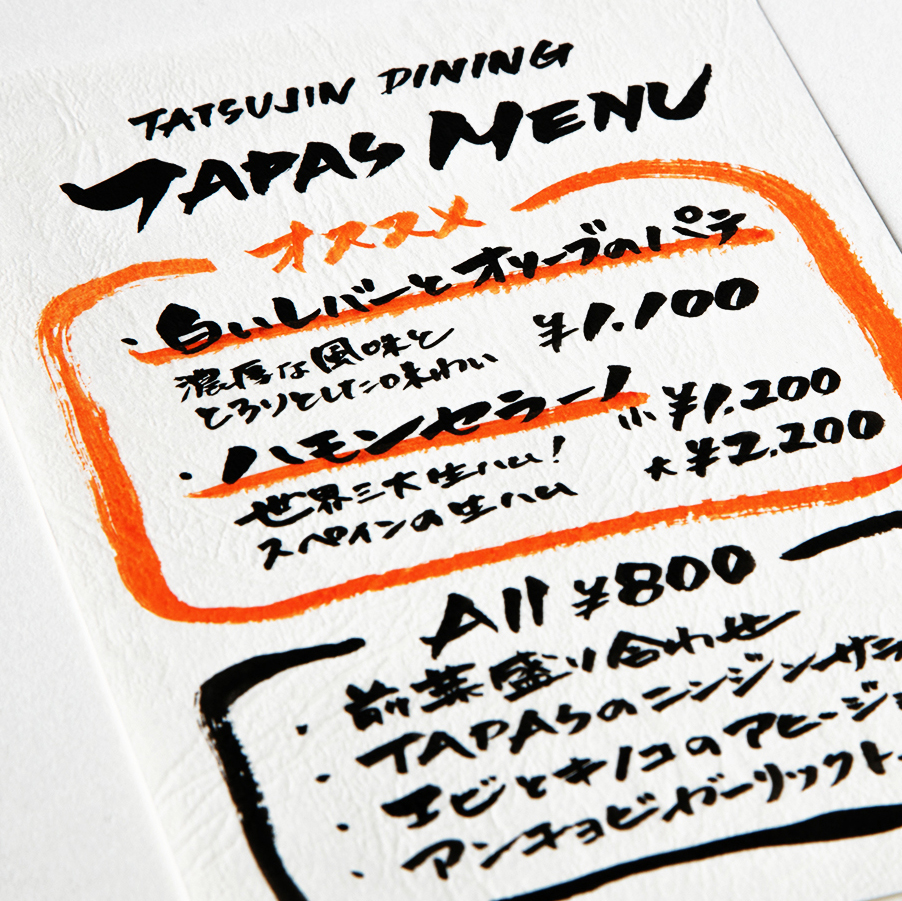 TATSUJIN DINING
TAPAS MENU
オススメ
・白いレバーとオリーブのパテ
濃厚な風味と
とろりとした味わい
¥1.100
・ハモンセラーノ
小¥1.200
大¥2.200
世界三大生ハム!
スペインの生ハム
All ¥800
・前菜盛り合わせ
・TAPASのニンジンサラ
・エビとキノコのアヒージョ
・アンチョビガーリックト